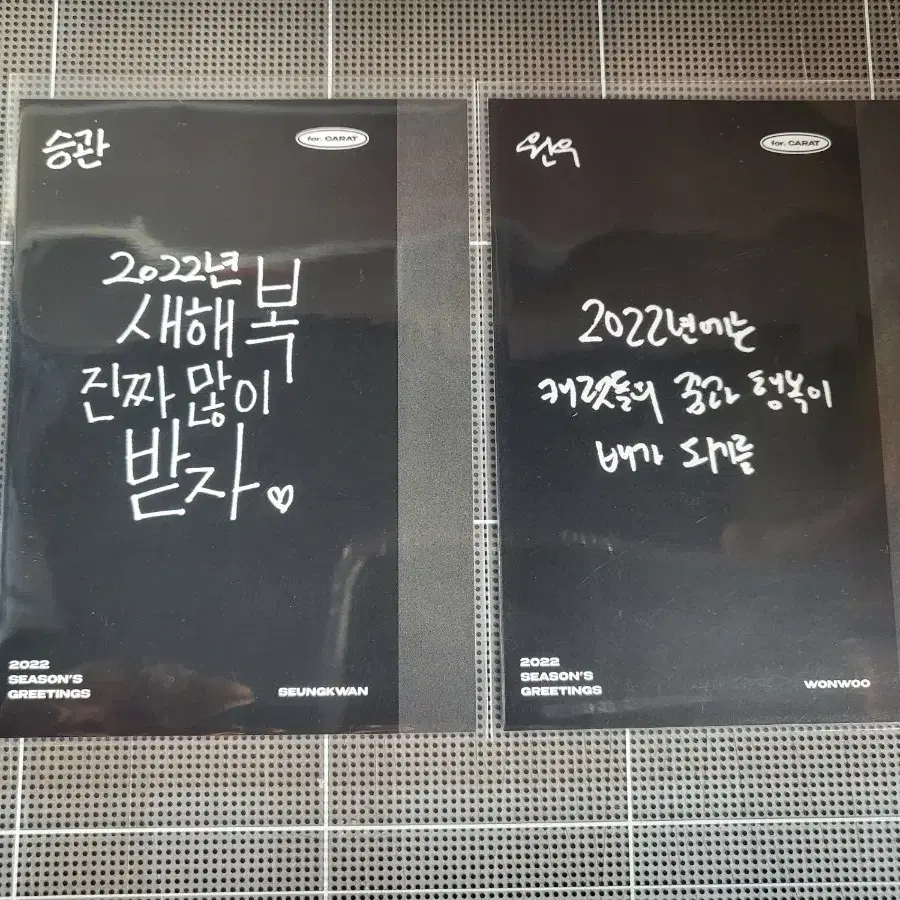 승관
for. CARAT
2022년
새해 복
진짜 많이
받자♡
2022
SEASON'S
GREETINGS
SEUNGKWAN
원우
for. CARAT
2022년에는
캐럿들의 꿈과 행복이
배가 되기를
2022
SEASON'S
GREETINGS
WONWOO